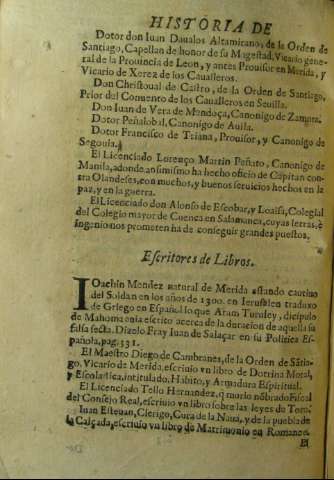 HISTORIA DE
Dotor don Iuan Daualos Altamirano, de la Orden de
Santiago, Capellan de honor de su Magestad, Vicario gene-
ral de la Prouincia de Leon, y antes Prouisor en Merida, y
Vicario de Xerez de los Caualleros.
Don Christoual de Castro, de la Orden de Santiago,
Prior del Conuento de los Caualleros en Seuilla.
Don Iuan de Vera de Mendoça, Canonigo de Zamora.
Dotor Peñalobil, Canonigo de Auila.
Dotor Francisco de Triana, Prouisor, y Canonigo de
Segouia.
El Licenciado Lorenço Martin Peñato, Canonigo de
Manila, adonde ansimismo ha hecho oficio de Capitan con-
tra Olandeses, con muchos, y buenos seruicios hechos en la
paz, y en la guerra.
El Licenciado don Alonso de Escobar, y Loaisa, Colegial
del Colegio mayor de Cuenca en Salamanca, cuyas letras, è
ingenio nos prometen ha de conseguir grandes puestos.
Escritores de Libros.
IOachin Mendez natural de Merida estando cautiuo
del Soldan en los años de 1300. en Ierusalen traduxo
de Griego en Español lo que Aram Turuley, dicipulo
de Mahoma auia escrito acerca de la duracion de aquella su
falsa secta. Dizelo Fray Iuan de Salaçar en su Politica Es-
pañola, pag. 331.
El Maestro Diego de Cambranes, de la Orden de Sãtia-
go, Vicario de Merida, escriuio vn libro de Dotrina Moral,
y Escolastica, intitulado, Habito, y Armadura Espiritual.
El Licenciado Tello Hernandez, q̃ murio nõbrado Fiscal
del Consejo Real, escriuio vn libro sobre las leyes de Toro.
Iuan Esteuan, Clerigo, Cura de la Naua, y de la puebla de
la Calçada, escriuio vn libro de Matrimonio en Romance.
El